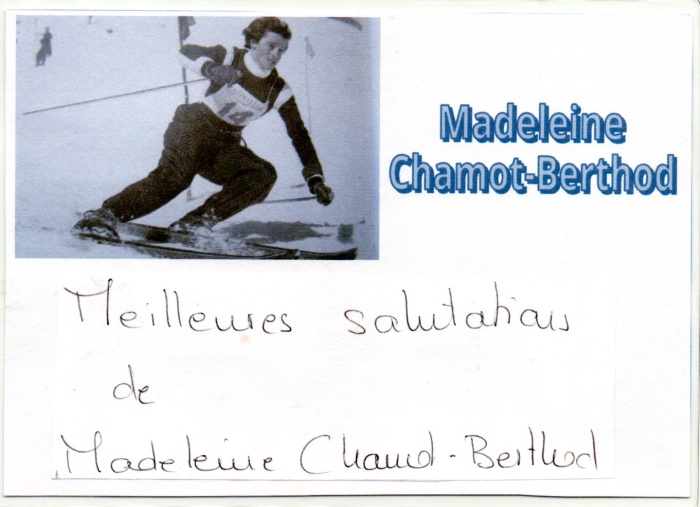 14
Madeleine
Chamot-Berthod
Meilleures salutations
de
Madeleine Chamot-Berthod